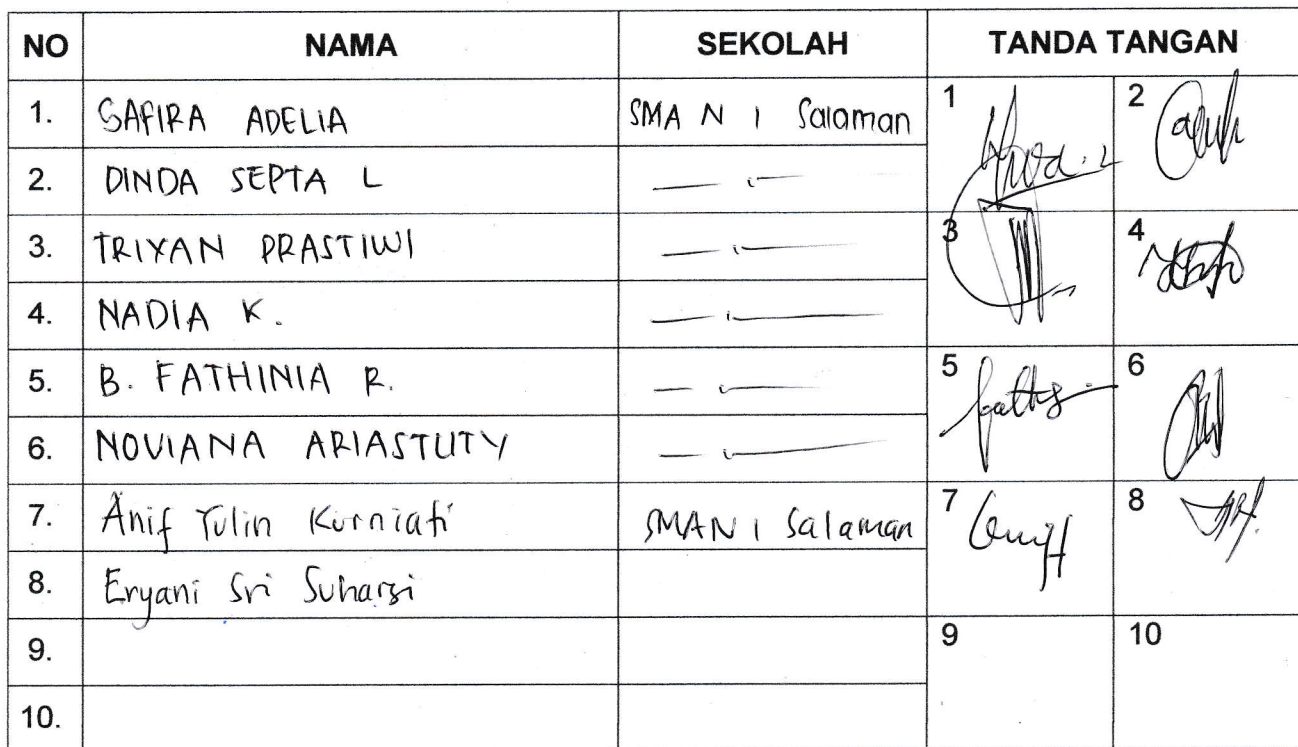 NO NAMA SEKOLAH TANDA TANGAN
1. SAFIRA ADELIA SMA N 1 Salaman 1 2
2. DINDA SEPTA L
3. TRIYAN PRASTIWI 3 4
4. NADIA K.
5. B. FATHINIA R. 5 6
6. NOVIANA ARIASTUTY
7. Anif Yulin Kurniati SMAN 1 Salaman 7 8
8. Eryani Sri Suharsi
9. 9 10
10.